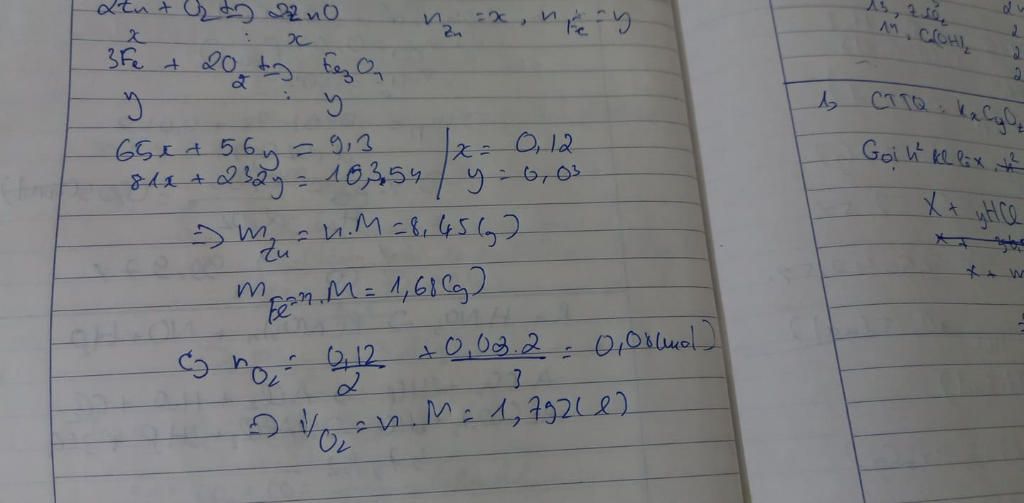 2Zn + O2 tº→ 2ZnO n Zn = x, n Fe = y
x : x
3Fe + 2O2 tº→ Fe3O4
y : y
65x + 56y = 9,3 | x = 0,12
81x + 232y = | y = 0,03
=> m Zn = n.M = 8,45(g)
m Fe = n.M = 1,68(g)
c) nO2 = 0,12/2 + 0,03.2/3 = 0,08(mol)
=> VO2 = n.M = 1,792(l)
14, C(OH)2
1, CTTQ: KxCyOz
X + yHCl
x + m